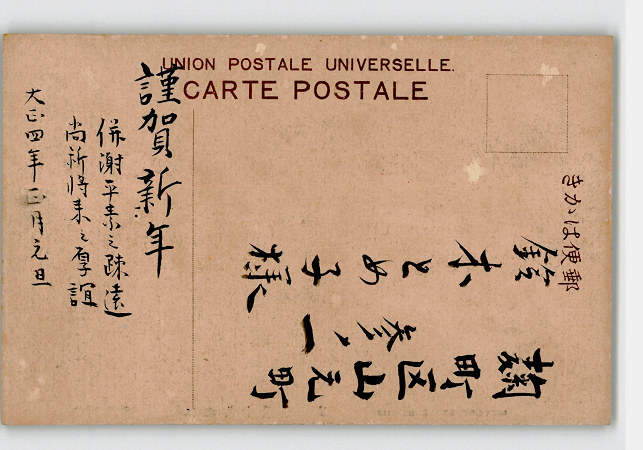 UNION POSTALE UNIVERSELLE.
CARTE POSTALE
きかは便郵
麹町区山元町
参ノ一
鈴木とめ子様
謹賀新年
併謝平素之疎遠
尚祈将来之厚誼
大正四年正月元旦